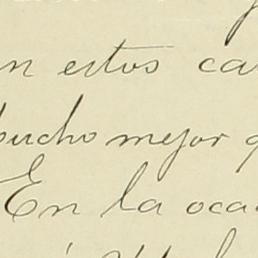 en estos ca
mucho mejor q
En la oca